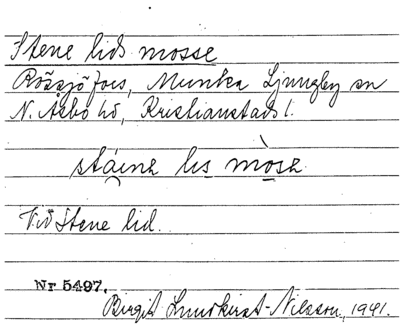 Stene lids mosse
Rössjö fors, Munka Ljungby sn
N. Åsbo hd, Kristianstads l.
stáịnə lis mòsə
Vid Stene lid.
Nr 5497.
Birgit Lundkvist-Nilsson, 1941.